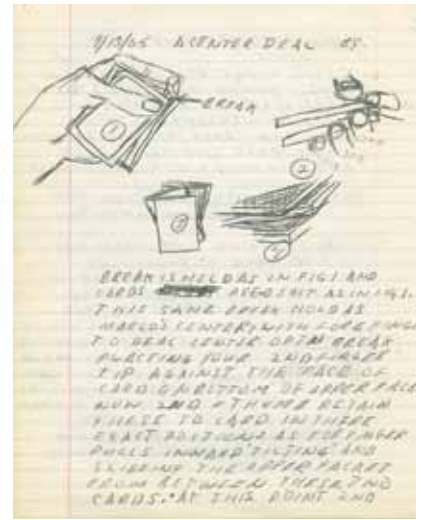 A CENTER DEAL
BREAK
1
2
3
4
BREAK IS HELD AS IN FIG 1. AND
CARDS ARE DEALT AS IN FIG 1.
THIS SAME BREAK HOLD AS
MARLO'S CENTER WITH FORE FINGER
TO DEAL CENTER OPEN BREAK
PLACEING YOUR 2ND FINGER
TIP AGAINST THE FACE OF
CARD ON BOTTOM OF UPPER PACK
NOW 2ND + THUMB RETAIN
THESE TO CARD IN THERE
EXACT POSITIONS AS FORFINGER
PULLS INWARD TILTING AND
SLIDEING THE UPPER PACKET
FROM BETWEEN THESE TWO
CARDS. AT THIS POINT 2ND